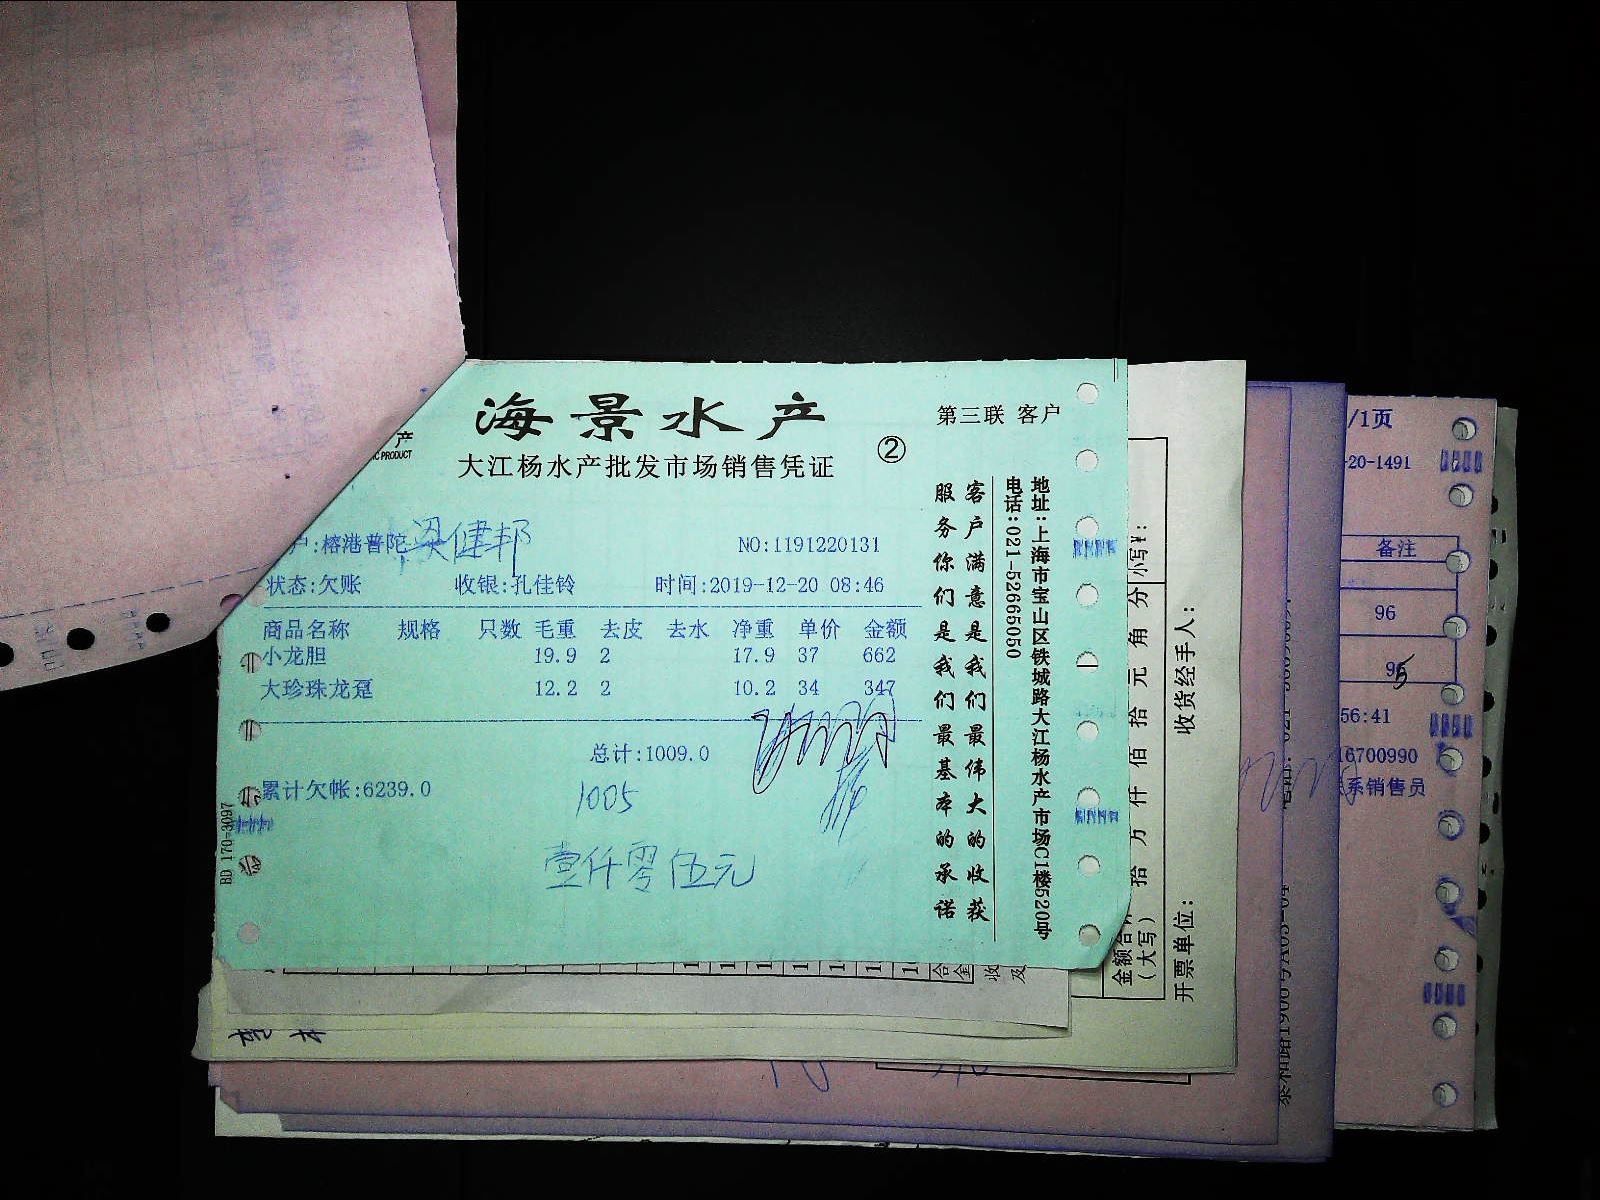 海景水产
第三联 客户
产
IC PRODUCT
大江杨水产批发市场销售凭证
②
户:榕港普陀 梁健邦
NO:1191220131
状态:欠账 收银:孔佳铃 时间:2019-12-20 08:46
商品名称 规格 只数 毛重 去皮 去水 净重 单价 金额
小龙胆 19.9 2 17.9 37 662
大珍珠龙趸 12.2 2 10.2 34 347
总计:1009.0
累计欠帐:6239.0
1005
壹仟零伍元
BD 170-3097
客户满意是我们最伟大的收获
服务你们是我们最基本的承诺
地址:上海市宝山区铁城路大江杨水产市场C1楼520号
电话:021-52665050
小写¥:
金额合计
(大写) 拾万仟佰拾元角分
收货经手人:
开票单位:
/1页
-20-1491
备注
96
95
56:41
16700990
系销售员